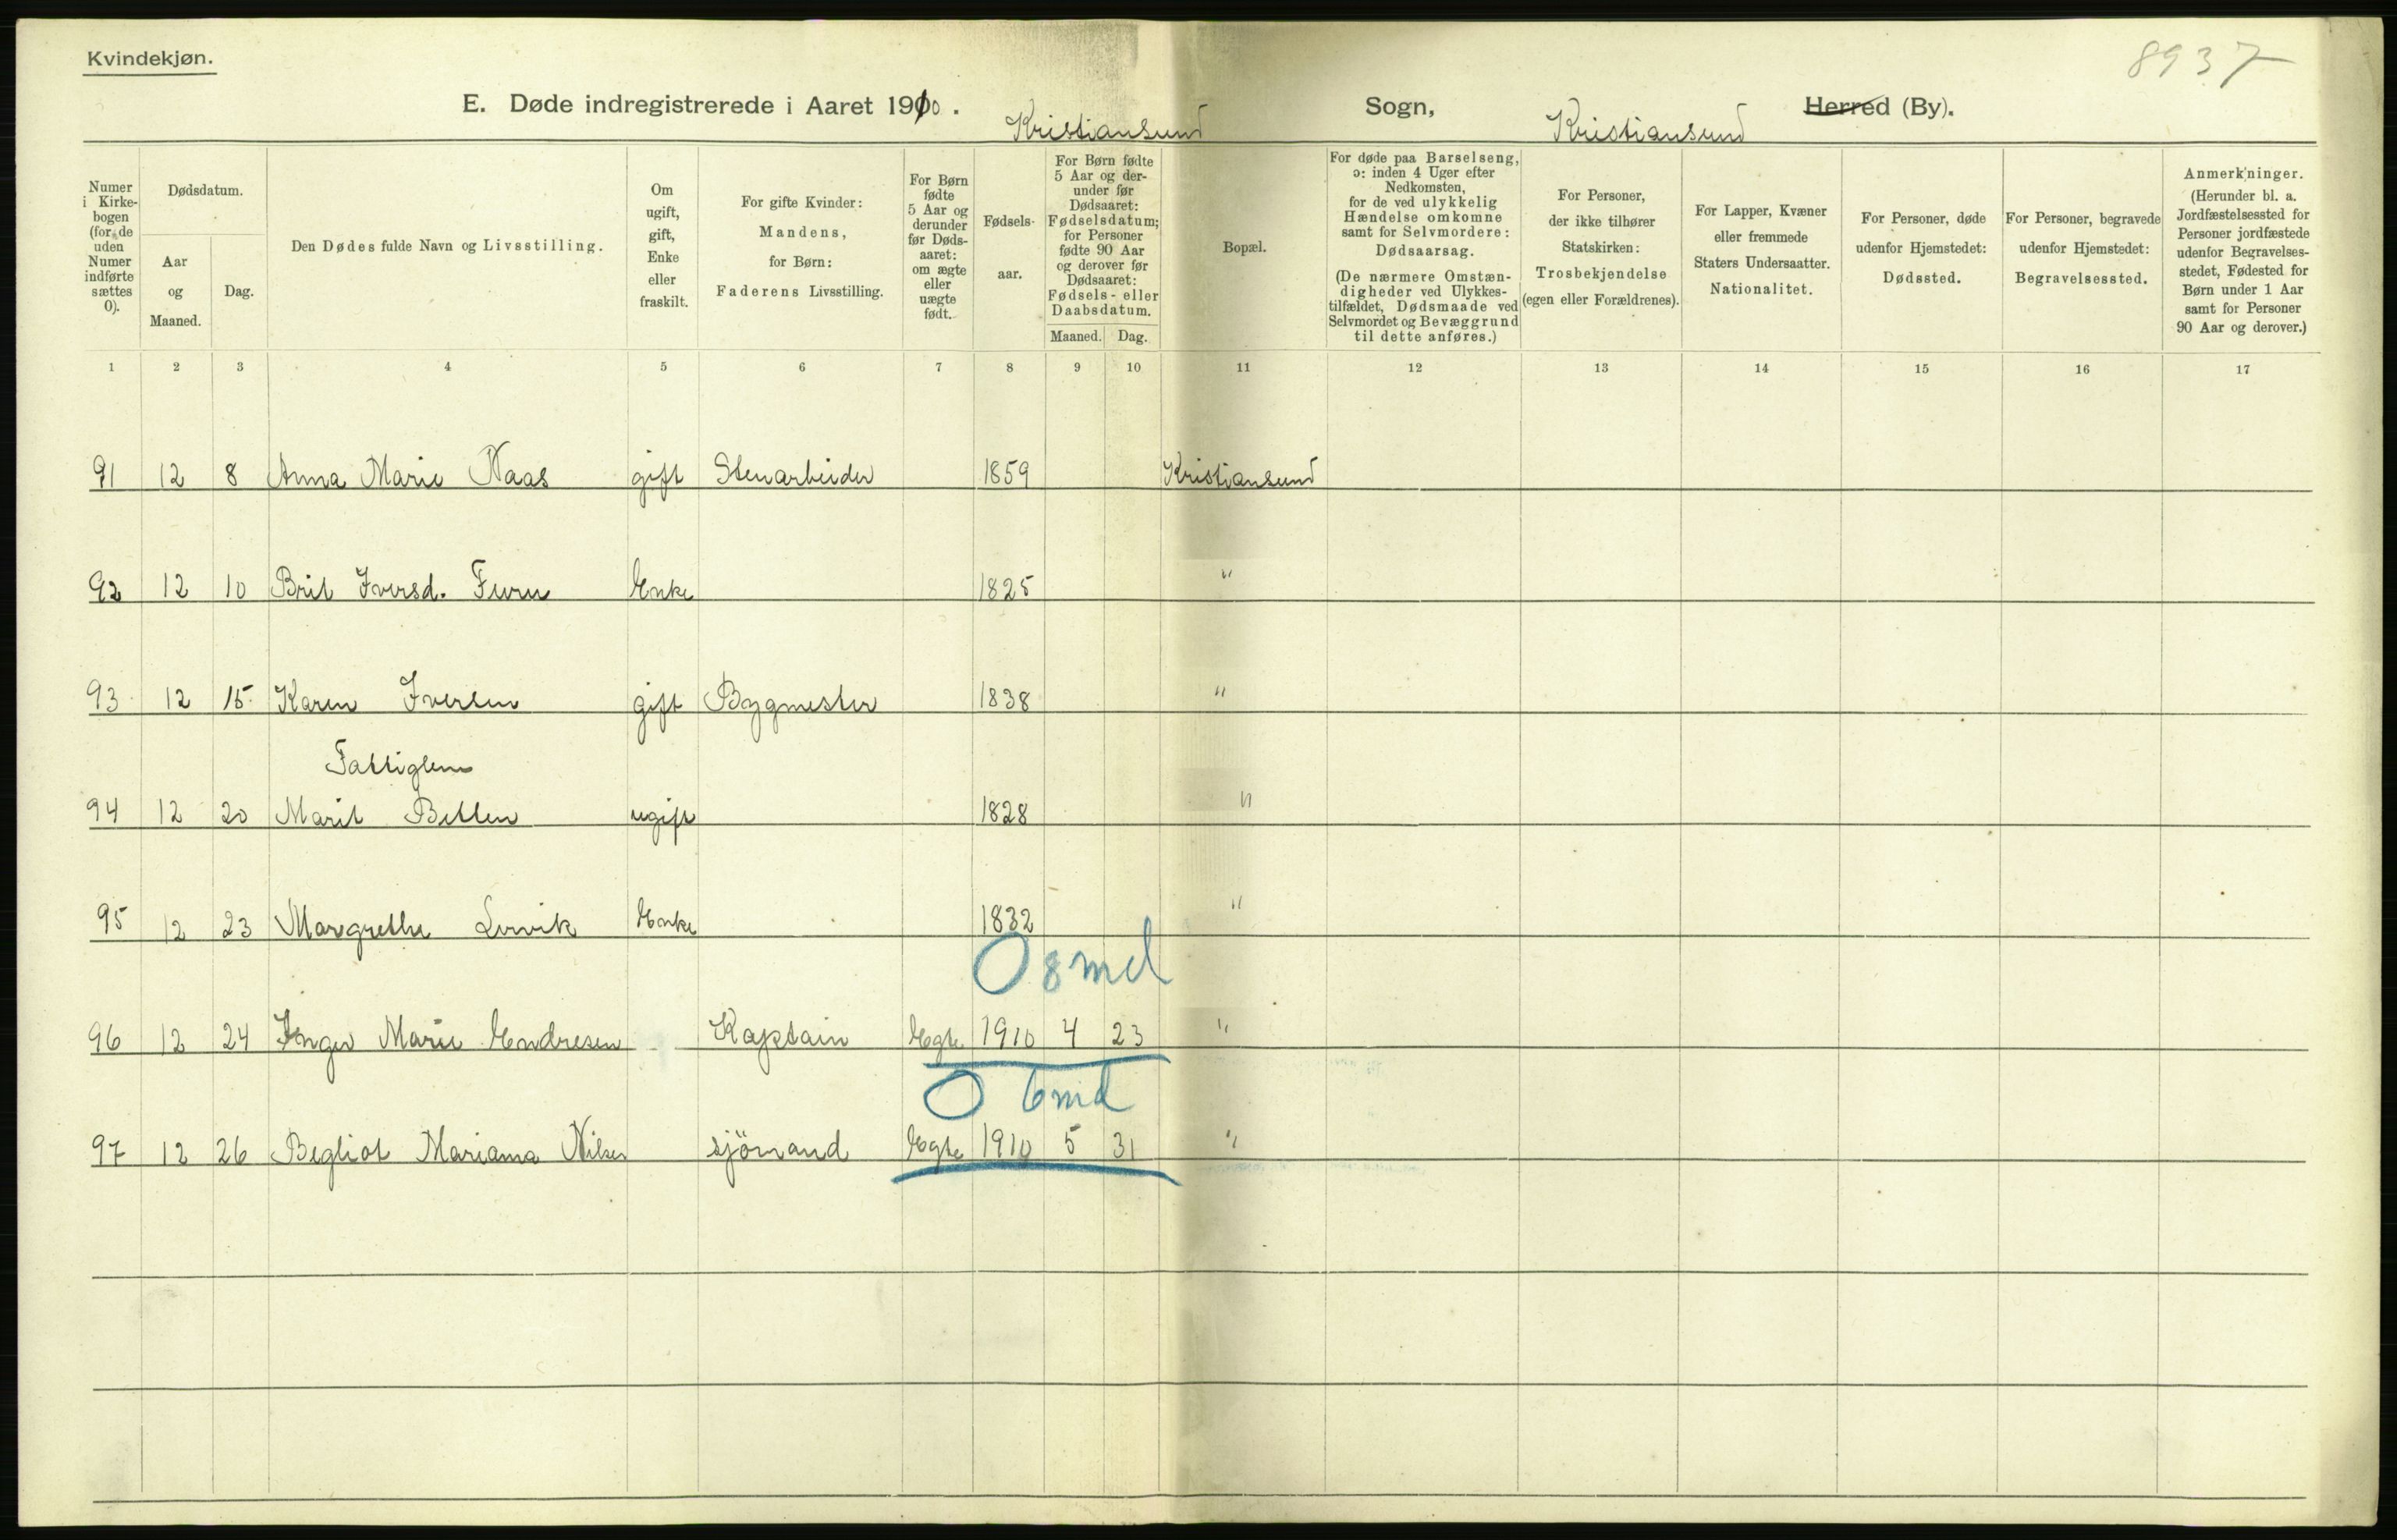 Kvindekjøn.
8937
E. Døde indregistrerede i Aaret 1910. Kristiansund Sogn, Kristiansund Herred (By).
Numer i Kirkebogen (for de uden Numer indførte sættes 0).
Dødsdatum.
Aar og Maaned.
Dag.
Den Dødes fulde Navn og Livsstilling.
Om ugift, gift, Enke eller fraskilt.
For gifte Kvinder: Mandens, for Børn: Faderens Livsstilling.
For Børn fødte 5 Aar og derunder før Dødsaaret: om ægte eller uægte født.
Fødselsaar.
For Børn fødte 5 Aar og derunder før Dødsaaret: Fødselsdatum; for Personer fødte 90 Aar og derover før Dødsaaret: Fødsels- eller Daabsdatum.
Maaned. Dag.
Bopæl.
For døde paa Barselseng, ɔ: inden 4 Uger efter Nedkomsten, for de ved ulykkelig Hændelse omkomne samt for Selvmordere: Dødsaarsag. (De nærmere Omstændigheder ved Ulykkestilfældet, Dødsmaade ved Selvmordet og Bevæggrund til dette anføres.)
For Personer, der ikke tilhører Statskirken: Trosbekjendelse (egen eller Forældrenes).
For Lapper, Kvæner eller fremmede Staters Undersaatter. Nationalitet.
For Personer, døde udenfor Hjemstedet: Dødssted.
For Personer, begravede udenfor Hjemstedet: Begravelsessted.
Anmerkninger. (Herunder bl. a. Jordfæstelsessted for Personer jordfæstede udenfor Begravelsesstedet, Fødested for Børn under 1 Aar samt for Personer 90 Aar og derover.)
1 2 3 4 5 6 7 8 9 10 11 12 13 14 15 16 17
91 12 8 Anna Marie Naas gift Stenarbeider 1859 Kristiansund
92 12 10 Brit Iversd. Furu Enke 1825 "
93 12 15 Karen Iversen gift Bygmester 1838 "
Fattiglem
94 12 20 Marit Betten ugift 1828 "
95 12 23 Margrethe Lervik Enke 1832 "
0 8 md
96 12 24 Inger Marie Endresen Kaptain Egte 1910 4 23 "
0 6 md
97 12 26 Begliot Mariama Nilsen sjömand Egte 1910 5 31 "